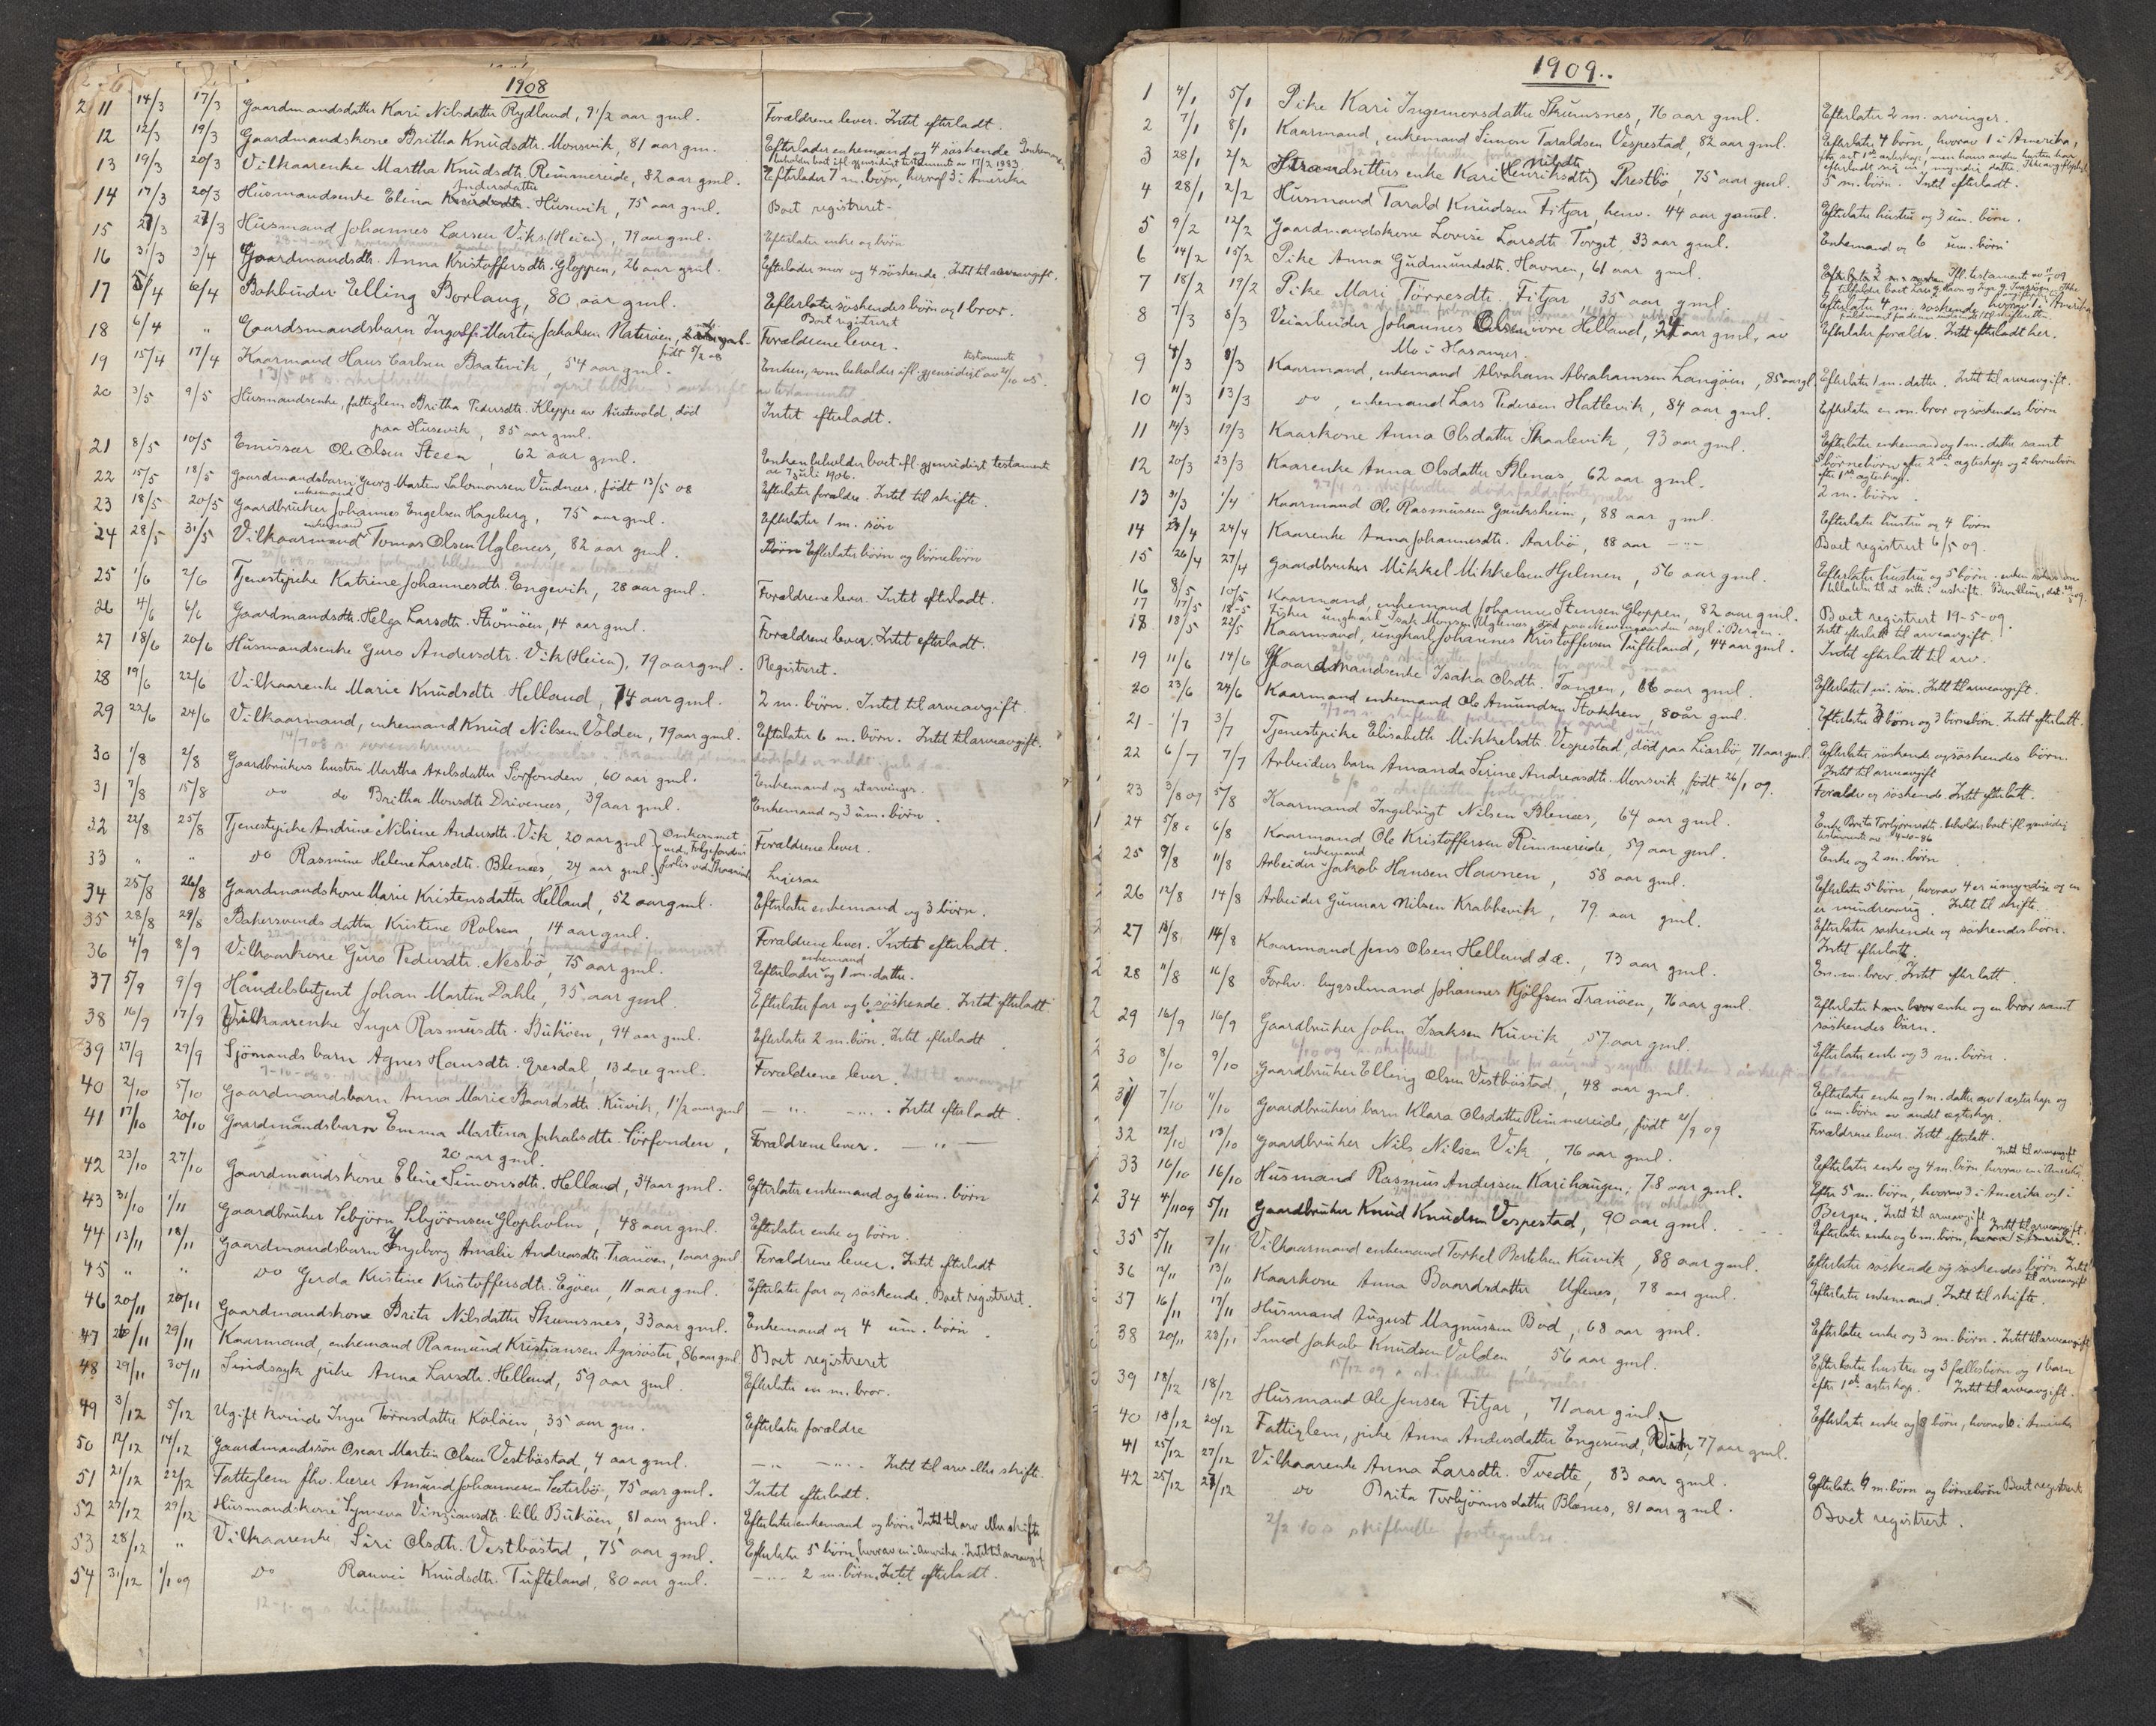 1908
11 14/3 17/3 Gaardmandsdatter Kari Nilsdatter Rydland, 9 1/2 aar gml. Forældrene lever. Intet efterladt.
12 12/3 19/3 Gaardmandskone Britha Knudsdtr. Monsvik, 81 aar gm. Efterlader enkemand og 4 søskende
beholder boet ifl. gjensidigt testamente av 17/2 1883
13 19/3 20/3 Vilkaarenke Martha Knudsdtr. Rimmereide, 82 aar gml. Efterlader 7 m. børn, hvoraf 3 i Amerika
14 17/3 20/3 Husmandsenke Elina Andersdatter Husevik, 75 aar gml. Boet registreret
15 27/3 Husmand Johannes Larsen Vik (Heien), 79 aar gml. Efterlater enke og børn
16 31/3 3/4 Gaardmandsdtr. Anna Kristoffersdtr. Gloppen, 26 aar gml. Efterlader mor og 4 søskende. Intet til arveavgift.
17 5/4 6/4 Bokbinder Elling Borlaug, 80 aar gml. Efterlater søskendes børn og 1 bror.
Boet registreret
18 6/4 " Gaardsmandsbarn Ingolf Martin Jakobsen født 5/2 08 Forældrene lever.
19 15/4 17/4 Kaarmand Hans Carlsen Baatevik, 54 aar gml. Enken, som beholder ifl. gjensidigt testamente av 21/10 05.
20 3/5 9/5 Husmandsenke, fattiglem Britha Pedersdtr. Kleppe av Austevold, død
paa Husevik, 85 aar gml. Intet efterladt.
21 8/5 10/5 Emissær Ole Olsen Steen, 62 aar gml. Enken beholder boet ifl. gjensidigt testamente
av 7 juli 1906.
22 15/5 18/5 Gaardmandsbarn Georg Martin Salomonsen Vindnæs, født 13/5 08 Efterlater forældre. Intet til skifte.
23 18/5 20/5 Gaardbruker enkemand Johannes Engelsen Hageberg, 75 aar gml. Efterlater 1 m. søn
24 28/5 31/5 Vilkaarmand enkemand Tomas Olsen Uglenes, 82 aar gml. Efterlater børn og børnebørn
25 1/6 2/6 Tjenestepike Katrine Johannesdtr. Engevik, 28 aar gml. Forældrene lever. Intet efterladt.
26 4/6 6/6 Gaardmandsdtr. Helga Larsdtr. Strømøen, 14 aar gml. Forældrene lever. Intet efterladt.
27 18/6 20/6 Husmandsenke Guro Andersdtr. Vik (Heien), 79 aar gml. Registreret.
28 19/6 22/6 Vilkaarenke Marie Knudsdtr. Helland, 74 aar gml. 2 m. børn. Intet til arveavgift.
29 22/6 24/6 Vilkaarmand, enkemand Knud Nilsen Valden, 79 aar gml. Efterlater 6 m. børn. Intet til arveavgift.
30 1/8 2/8 Gaardbrukers hustru Martha Axelsdatter Sørfonden, 60 aar gml. Enkemand og utarvinger.
31 7/8 15/8 do do Britha Monsdtr. Drivenes, 39 aar gml. Enkemand og 3 um. børn.
32 22/8 25/8 Tjenestepike Andrine Nilsine Andersdtr. Vik, 20 aar gml. Omkommet ved Forældrene lever.
33 " " do Rasmine Helene Larsdtr. Blenæs, 24 aar gml. forlis ved Ligesaa
34 25/8 26/8 Gaardmandskone Marie Kristensdatter Helland, 52 aar gml. Efterlater enkemand og 3 børn.
35 28/8 29/8 Bakersvends datter Kristine Rolsen, 14 aar gml. Forældrene lever. Intet efterladt.
36 4/9 8/9 Vilkaarkone Guro Pedersdtr. Nesbø, 75 aar gml. Efterlader enkemand og 1 m. datter.
37 5/9 9/9 Handelsbetjent Johan Martin Dahle, 35 aar gml. Efterlater far og 6 søskende. Intet efterladt
38 16/9 17/9 Vilkaarenke Inger Rasmusdtr. Bukøen, 94 aar gml. Efterlater 2 m. børn. Intet efterladt.
39 27/9 29/9 Sjømands barn Agnes Hansdtr. Øresdal 13 dage gml. Forældrene lever.
40 2/10 5/10 Gaardmandsbarn Anna Marie Baardsdtr. Kuvik, 1 1/2 aar gml — " — " — . Intet efterladt.
41 17/10 20/10 Gaardmandsbarn Emma Martina Jakobsdtr. Sørfonden,
20 aar gml. Forældrene lever. — " —
42 23/10 27/10 Gaardmandskone Eline Simonsdtr. Helland, 34 aar gml. Efterlater enkemand og 6 um. børn
43 31/10 1/11 Gaardbruker Sebjørn Sebjørnsen Glopholm, 48 aar gml. Efterlater enke og børn.
44 13/11 18/11 Gaardmandsbarn Ingeborg Amalie Andreasdtr. Tranøen, 1 aar gml Forældrene lever. Intet efterladt
45 " " do Gerda Kristine Kristoffersdtr. Egøen, 11 aar gml. Efterlater far og søskende. Boet registrert.
46 20/11 20/11 Gaardmandskone Brita Nilsdatter Skumsnes, 33 aar gml. Enkemand og 4 um. børn.
47 26/11 29/11 Kaarmand, enkemand Raamund Kristiansen Agasøster, 86 aar gml. Boet registreret
48 29/11 30/11 Sindssyk pike Anna Larsdtr. Helland, 59 aar gml. Efterlater en m. bror.
49 3/12 5/12 Ugift kvinde Inger Tørresdatter Kaløen, 35 aar gm. Efterlater forældre
50 12/12 14/12 Gaardmandssøn Oscar Martin Olsen Vestbøstad, 4 aar gml. — " — " — . Intet til arv eller skifte.
51 21/12 22/12 Fattiglem fhv. lærer Amund Johannesen Sæterbø, 75 aar gml. Intet efterladt.
52 27/12 29/12 Husmandskone Synneva Vingiansdtr. lille Bukøen, 81 aar gml. Efterlater enkemand og børn Intet til arv eller skifte
53 28/12 " Vilkaarenke Siri Olsdtr. Vestbøstad, 75 aar gml. Efterlater 5 børn, hvorav en i Amerika. Intet til arveavgift
54 31/12 1/1 09 do Rannei Knudsdtr. Tufteland, 80 aar gml. — " — 2 m. børn. Intet efterladt.
12-1-09 s. skifteretten fortegnelse
1909.
1 4/1 5/1 Pike Kari Ingemorsdatter Skumsnes, 76 aar gml. Efterlater 2 m. arvinger.
2 7/1 8/1 Kaarmand, enkemand Simon Taraldsen Vespestad, 82 aar gml. Efterlater 4 børn, hvorav 1 i Amerika,
3 28/1 2/2 Strandsitters enke Kari Nilsdtr. (Henriksdtr) Prestbø, 75 aar gml.
4 28/1 2/2 Husmand Tarald Knudsen Fitjar, henv. 44 aar gamel. 5 m. børn. Intet efterladt.
Efterlater hustru og 3 um. børn.
5 9/2 12/2 Gaardmandskone Lovise Larsdtr. Torget, 33 aar gml. Enkemand og 6 um. børn
6 14/2 15/2 Pike Anna Gudmundsdtr. Havnen, 61 aar gml.
7 18/2 19/2 Pike Mari Tørresdtr. Fitjar 35 aar gml. Efterlater 4 m. søskende, hvorav 1 i Amerika
8 7/3 8/3 Veiarbeider Johannes Olsen øvre Helland, 24 aar gml., av
Mo i Hosanger. Efterlater forældre. Intet efterladt her.
9 8/3 8/3 Kaarmand, enkemand Abraham Abrahamsen Langøen, 85 aar gl. Efterlater 1 m. datter. Intet til arveavgift.
10 11/3 13/3 do, enkemand Lars Pedersen Hatlevik, 84 aar gml. Efterlater en m. bror og søskendes børn
11 14/3 19/3 Kaarkone Anna Olsdatter Skaalevik, 93 aar gml. Efterlater enkemand og 1 m. datter samt
5 børnebørn efter 2det ægteskap og 2 børnebørn
efter 1ste ægteskap.
12 20/3 23/3 Kaarenke Anna Olsdatter Blenæs, 62 aar gml. 2 m. børn.
13 31/3 1/4 Kaarmand Ole Rasmussen Gauksheim, 88 aar gml Efterlater hustru og 4 børn
14 23/4 24/4 Kaarenke Anna Johannesdtr. Aarbø, 88 aar — " — Boet registrert 6/5 09.
15 26/4 27/4 Gaardbruker Mikkel Mikkelsen Hjelmen, 56 aar gml. Efterlater hustru og 5 børn.
16 8/5 10/5 Kaarmand, enkemand Johannes Stensen Gloppen, 82 aar gml. Boet registrert 19-5-09.
17 17/5 18-5 Fisker ungkarl Isak Monsen Uglenes, død paa asyl i Bergen. Intet efterlatt til arveavgift.
18 18/5 22/5 Kaarmand, ungkarl Johannes Kristoffersen Tufteland, 44 aar gml. Intet efterlatt til arv.
19 11/6 14/6 Gaardmandsenke Isaka Olsdtr. Tangen, 66 aar gml. Efterlater 1 m. søn. Intet til arveavgift.
20 23/6 24/6 Kaarmand enkemand Ole Amundsen Stokken, 80 aar gml. Efterlater 3 børn og 3 børnebørn. Intet efterlatt.
21 1/7 3/7 Tjenestepike Elisabeth Mikkelsdtr. Vespestad, død paa Liarbø, 71 aar gml. Efterlater søskende og søskendes børn.
Intet til arveavgift
22 6/7 7/7 Arbeiders barn Amanda Serine Andreasdtr. Monsvik, født 26/1 09. Forældre og søskende. Intet efterlatt.
23 3/8 09 5/8 Kaarmand Ingebrigt Nilsen Blenæs, 64 aar gml. Enke Brita Torbjørnsdtr. beholder boet ifl. gjensidig
24 5/8 6/8 Kaarmand Ole Kristoffersen Rimmereide, 59 aar gml. Enke og 2 m. børn
25 9/8 11/8 Arbeider enkemand Jakob Hansen Havnen, 58 aar gml. Efterlater 5 børn, hvorav 4 er umyndige og en
er mindreaarig. Intet til skifte.
26 12/8 14/8 Arbeider Gunnar Nilsen Krabbevik, 79 aar gml. Efterlater søskende og søskendes børn.
Intet efterlatt.
27 13/8 14/8 Kaarmand Jens Olsen Helland d.æ., 73 aar gml. En m. bror. Intet efterlatt.
28 11/8 16/8 Forhv. bygselmand Johannes Kjølfsen Tranøen, 76 aar gml. Efterlater enke og en bror samt
søskendes børn.
29 16/9 16/9 Gaardbruker John Isaksen Kuvik, 57 aar gml. Efterlater enke og 3 m. børn.
30 8/10 9/10 Gaardbruker Elling Olsen Vestbøstad, 48 aar gml. Efterlater enke og 1 m. datter av 1 ægteskap og
6 um. børn av andet ægteskap.
31 7/10 11/10 Gaardbrukers barn Klara Olsdatter Rimmereide, født 21/9 09 Forældrene lever. Intet efterlatt.
32 12/10 13/10 Gaardbruker Nils Nilsen Vik, 76 aar gml. Efterlater enke og 4 m. børn hvorav en i Amerika. Intet til arveavgift
33 16/10 16/10 Husmand Rasmus Andersen Karihaugen, 78 aar gml. Efter 5 m. børn, hvorav 3 i Amerika og 1 i
Bergen. Intet til arveavgift
34 4/11 09 5/11 Gaardbruker Knud Knudsen Vespestad, 90 aar gml. Efterlater enke og 6 m. børn, Intet til arveavgift.
35 5/11 7/11 Vilkaarmand enkemand Torkel Bertelsen Kuvik, 88 aar gml. Efterlater søskende og søskendes børn Intet
til arveavgift
36 12/11 13/11 Kaarkone Anna Baardsdatter Uglenes, 78 aar gml. Efterlater enkemand. Intet til skifte.
37 16/11 17/11 Husmand August Magnussen Bød, 68 aar gml. Efterlater enke og 3 m. børn. Intet til arveavgift
38 20/11 23/11 Smed Jakob Knudsen Valden, 56 aar gml. Efterlater hustru og 3 fællesbørn og 1 barn
efter 1ste ægteskap. Intet til arveavgift.
39 18/12 18/12 Husmand Ole Jensen Fitjar, 71 aar gml. Efterlater enke og 8 børn, hvorav 6 i Amerika
40 18/12 20/12 Fattiglem, pike Anna Andersdatter Engesund, 77 aar gml.
41 25/12 27/12 Vilkaarenke Anna Larsdtr. Tvedte, 83 aar gml. Efterlater 6 m. børn og børnebørn Boet registrert
42 25/12 27/12 do Brita Torbjørnsdatter Blænes, 81 aar gml. Boet registrert.
2/2 10 s. skifteretten fortegnelse.